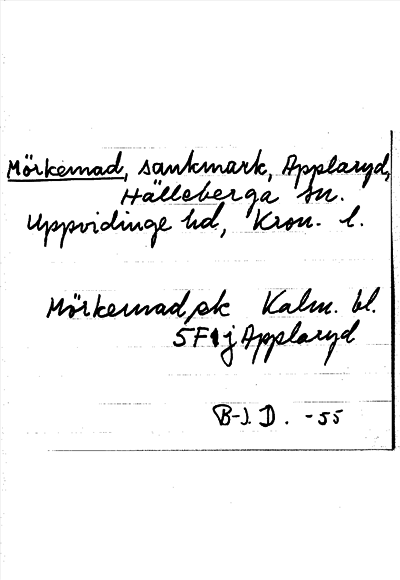 Mörkemad, sankmark, Applaryd,
Hälleberga sn.
Uppvidinge hd, Kron. l.
Mörkemad, ek Kalm. bl.
5F1j Applaryd
B-J. D. -55